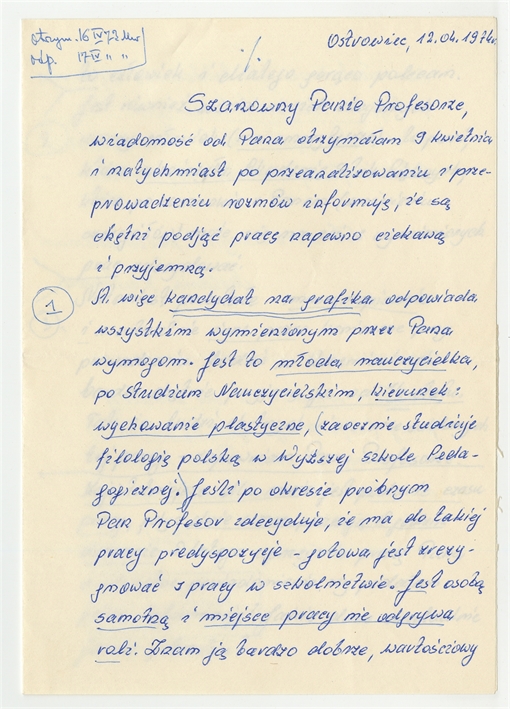 otrzym. 16 IV 72
odp. 17 IV " "
Ostrowiec, 12.04.1972r.
./.
Szanowny Panie Profesorze,
wiadomość od Pana otrzymałam 9 kwietnia
i natychmiast po przeanalizowaniu i prze-
prowadzeniu rozmów informuję, że są
chętni podjąć pracę napewno ciekawą
i przyjemną.
1
A więc kandydat na grafika odpowiada
wszystkim wymienionym przez Pana
wymogom. Jest to młoda nauczycielka,
po Studium Nauczycielskim, kierunek:
wychowanie plastyczne, (zaocznie studiuje
filologię polską w Wyższej szkole Peda-
gogicznej.) Jeśli po okresie próbnym
Pan Profesor zdecyduje, że ma do takiej
pracy predyspozycje - gotowa jest zrezy-
gnować z pracy w szkolnictwie. Jest osobą
samotną i miejsce pracy nie odgrywa
roli. Znam ją bardzo dobrze, wartościowy